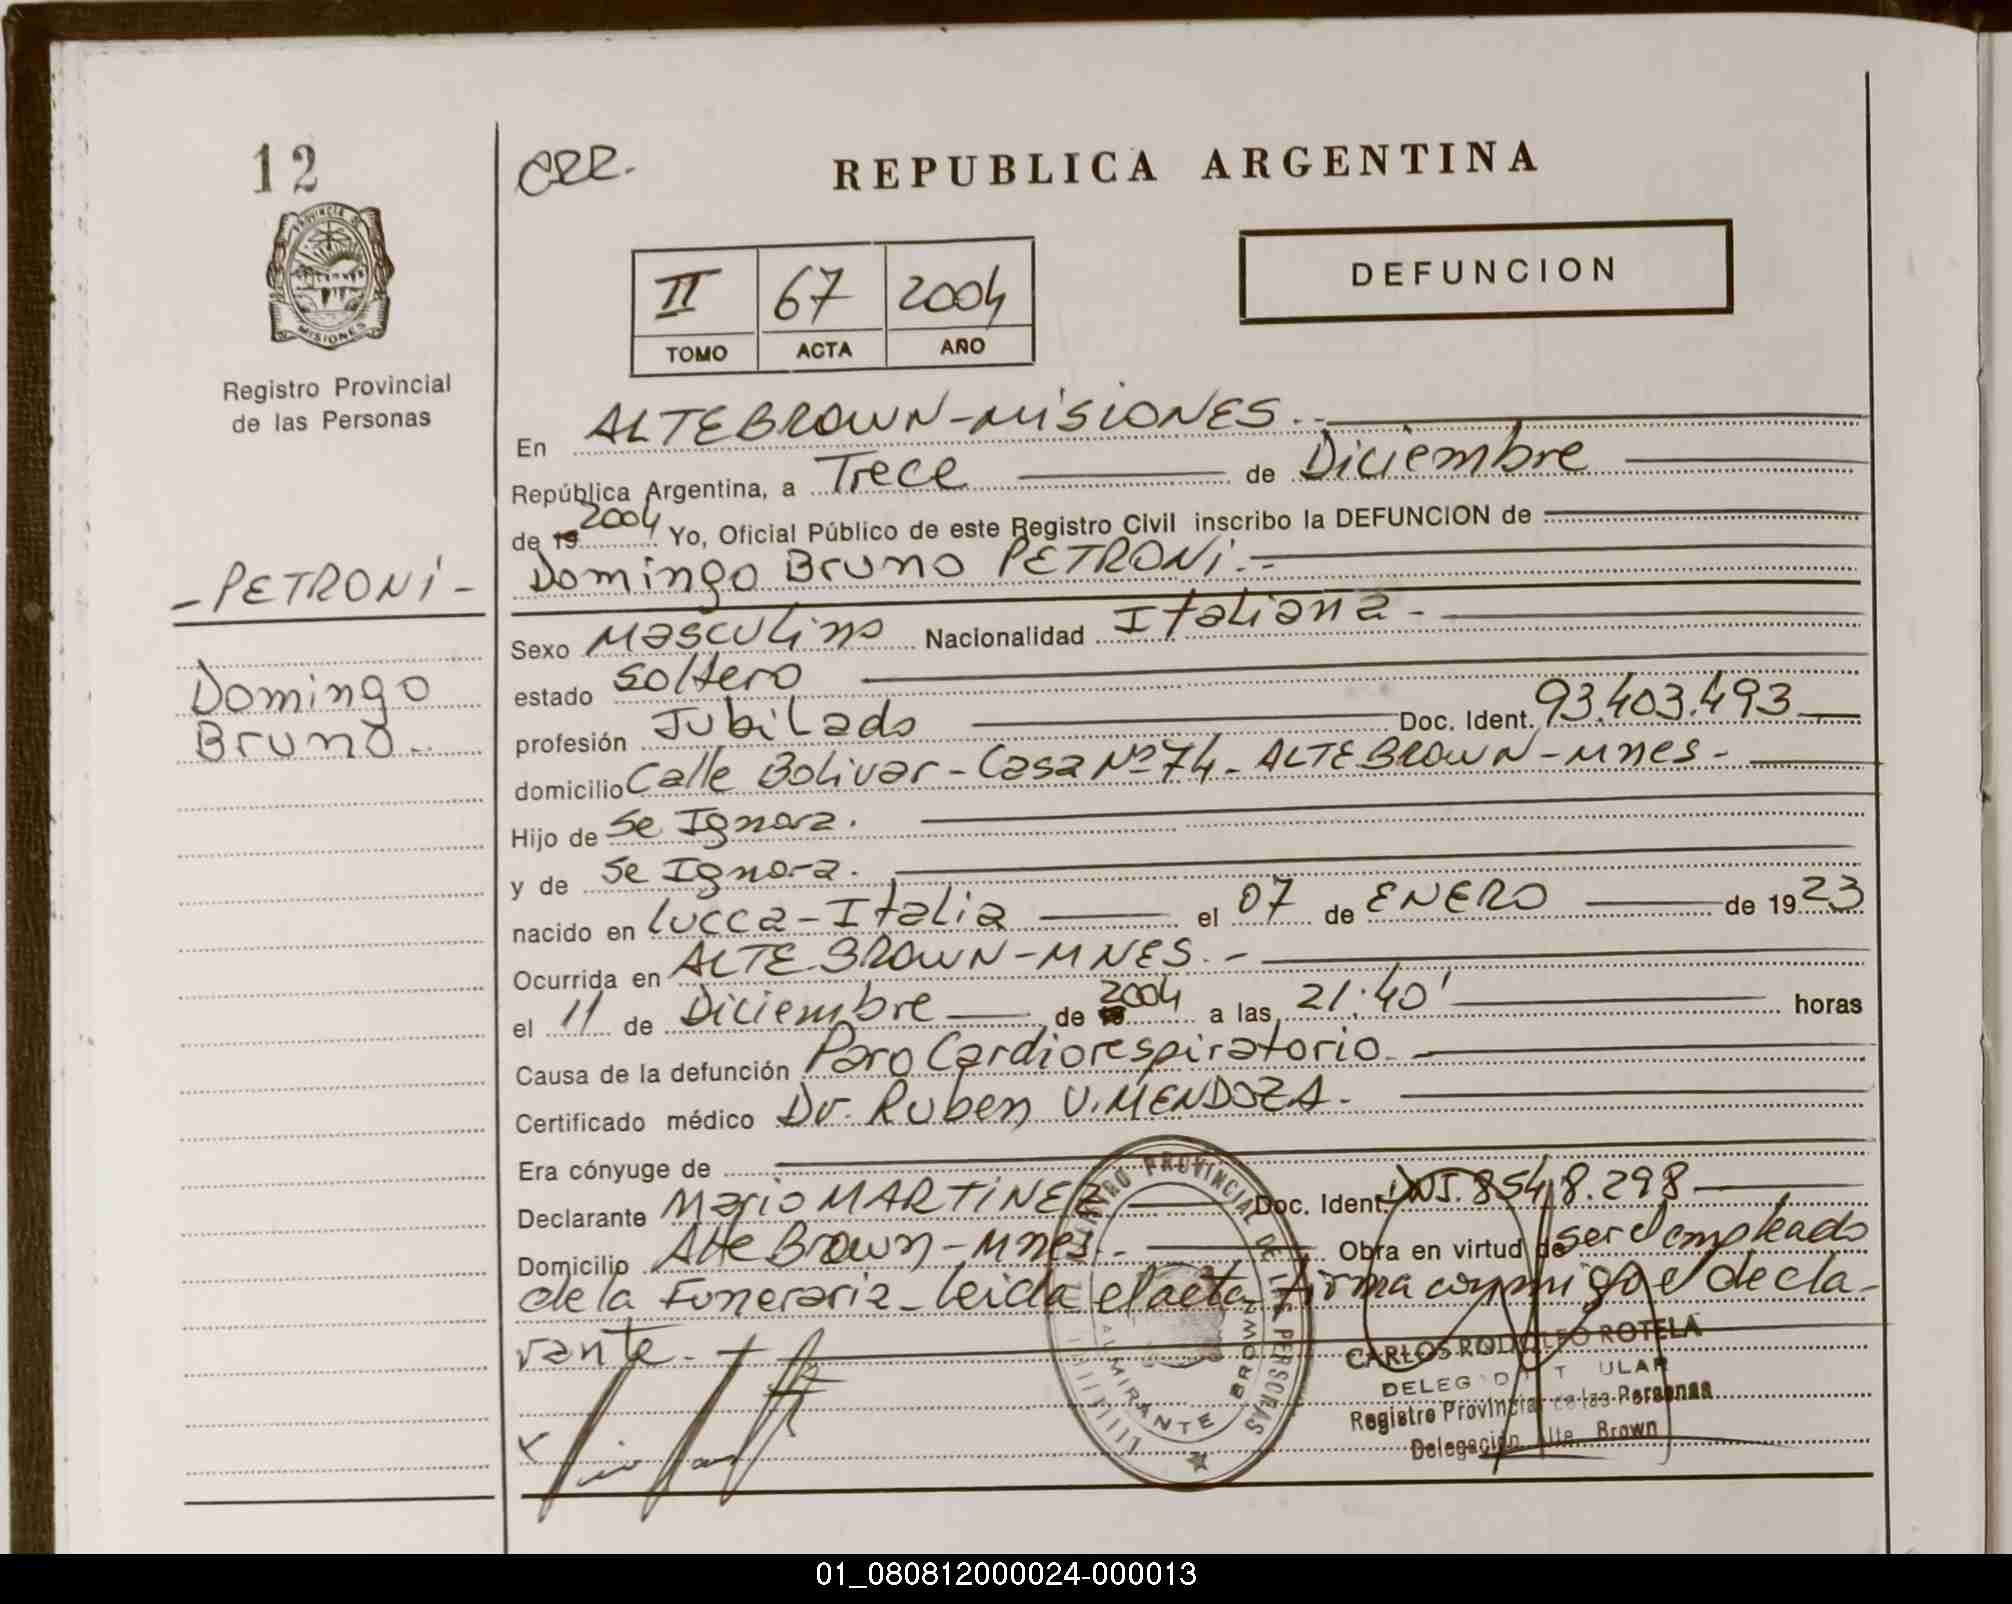 12
PROVINCIA DE
MISIONES
Registro Provincial
de las Personas
- PETRONI -
Domingo
Bruno..
REPUBLICA ARGENTINA
DEFUNCION
II 67 2004
TOMO ACTA AÑO
En ALTE BROWN-MISIONES.-
República Argentina, a Trece de Diciembre
de 19 2004 Yo, Oficial Público de este Registro Civil inscribo la DEFUNCION de
Domingo Bruno PETRONI.-
Sexo Masculino Nacionalidad Italiana -
estado Soltero
profesión Jubilado Doc. Ident. 93.403.493
domicilio Calle Bolivar - Casa Nº 74 - ALTE BROWN - Mnes -
Hijo de Se Ignora.
y de Se Ignora.
nacido en Lucca - Italia el 07 de ENERO de 1923
Ocurrida en ALTE BROWN-MNES.-
el 11 de Diciembre de 19 2004 a las 21.40' horas
Causa de la defunción Paro Cardiorespiratorio.-
Certificado médico Dr. Ruben V. MENDOZA.-
Era cónyuge de
Declarante Mario MARTINEZ Doc. Ident. DNI. 8548.298
Domicilio Alte Brown - Mnes.- Obra en virtud de ser el empleado
de la Funeraria - leida el acta firma conmigo el decla-
rante.-
REGISTRO PROVINCIAL DE LAS PERSONAS
ALMIRANTE BROWN
CARLOS RODOLFO ROTELA
DELEGADO TITULAR
Registro Provincial de las Personas
Delegación Alte. Brown
01_080812000024-000013